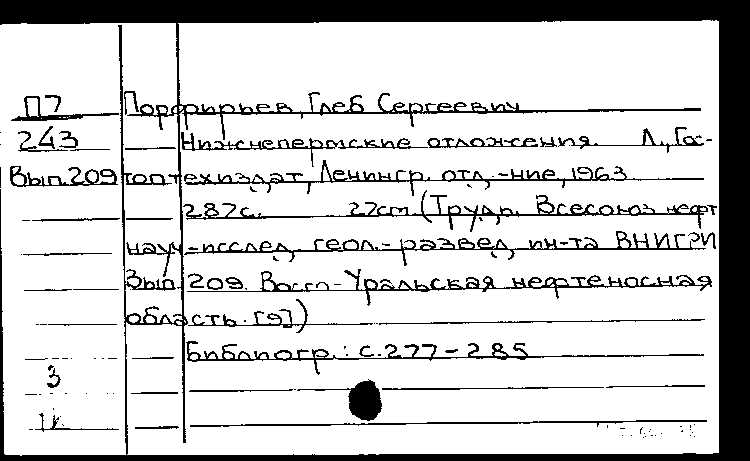 П7 Порфирьев, Глеб Сергеевич
243 Нижнепермские отложения. Л., Гос-
Вып.209 топтехиздат, Ленингр. отд.-ние, 1963
287с. 27cm. (Труды. Всесоюз нефт
науч-исслед. геол.-развед. ин-та ВНИГРИ
Вып. 209. Волго-Уральская нефтеносная
область. [9])
Библиогр.: с.277-285
3